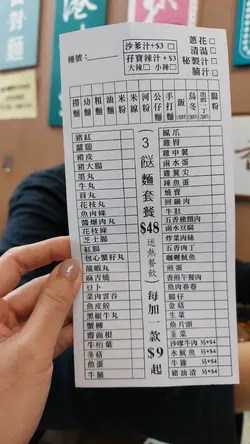 蔥花☐
清湯☐
秘製汁☐
腩汁☐
檯號:
沙爹汁+$3 ☐
孖寶辣汁+$3
大辣☐ 小辣☐
撈麵
幼麵
粗麵
油麵
米粉
米線
河粉
公仔麵
手打麵
飯
烏冬
腸粉
3餸麵套餐 $48 送熱餐飲
每加一款 $9 起
豬紅
蘿蔔
豬皮
豬大腸
墨丸
牛丸
貢丸
花枝丸
魚肉條
爆肉丸
花枝條
芝士腸
紅腸
包心蟹籽丸
龍蝦丸
魚燒賣
豆卜
菜肉雲吞
魚皮餃
黑椒牛丸
蟹柳
齋面根
牛柏葉
冬菇
魚蛋
牛腩
鳳爪
雞腎
雞中翼
鹵水蛋
雞翼尖
辣魚蛋
燒賣
回鍋肉
牛肚
五香豬頸肉
鹵水豆腐
炸菜肉絲
五香肉丁
咖喱魷魚
煎蛋
香煎午餐肉
魚肉春卷
腸仔
金菇
生菜
魚片頭
王菜
沙嗲牛肉 另+$4
水魷魚 另+$4
牛𦟌 另+$4
豬油渣 另+$4